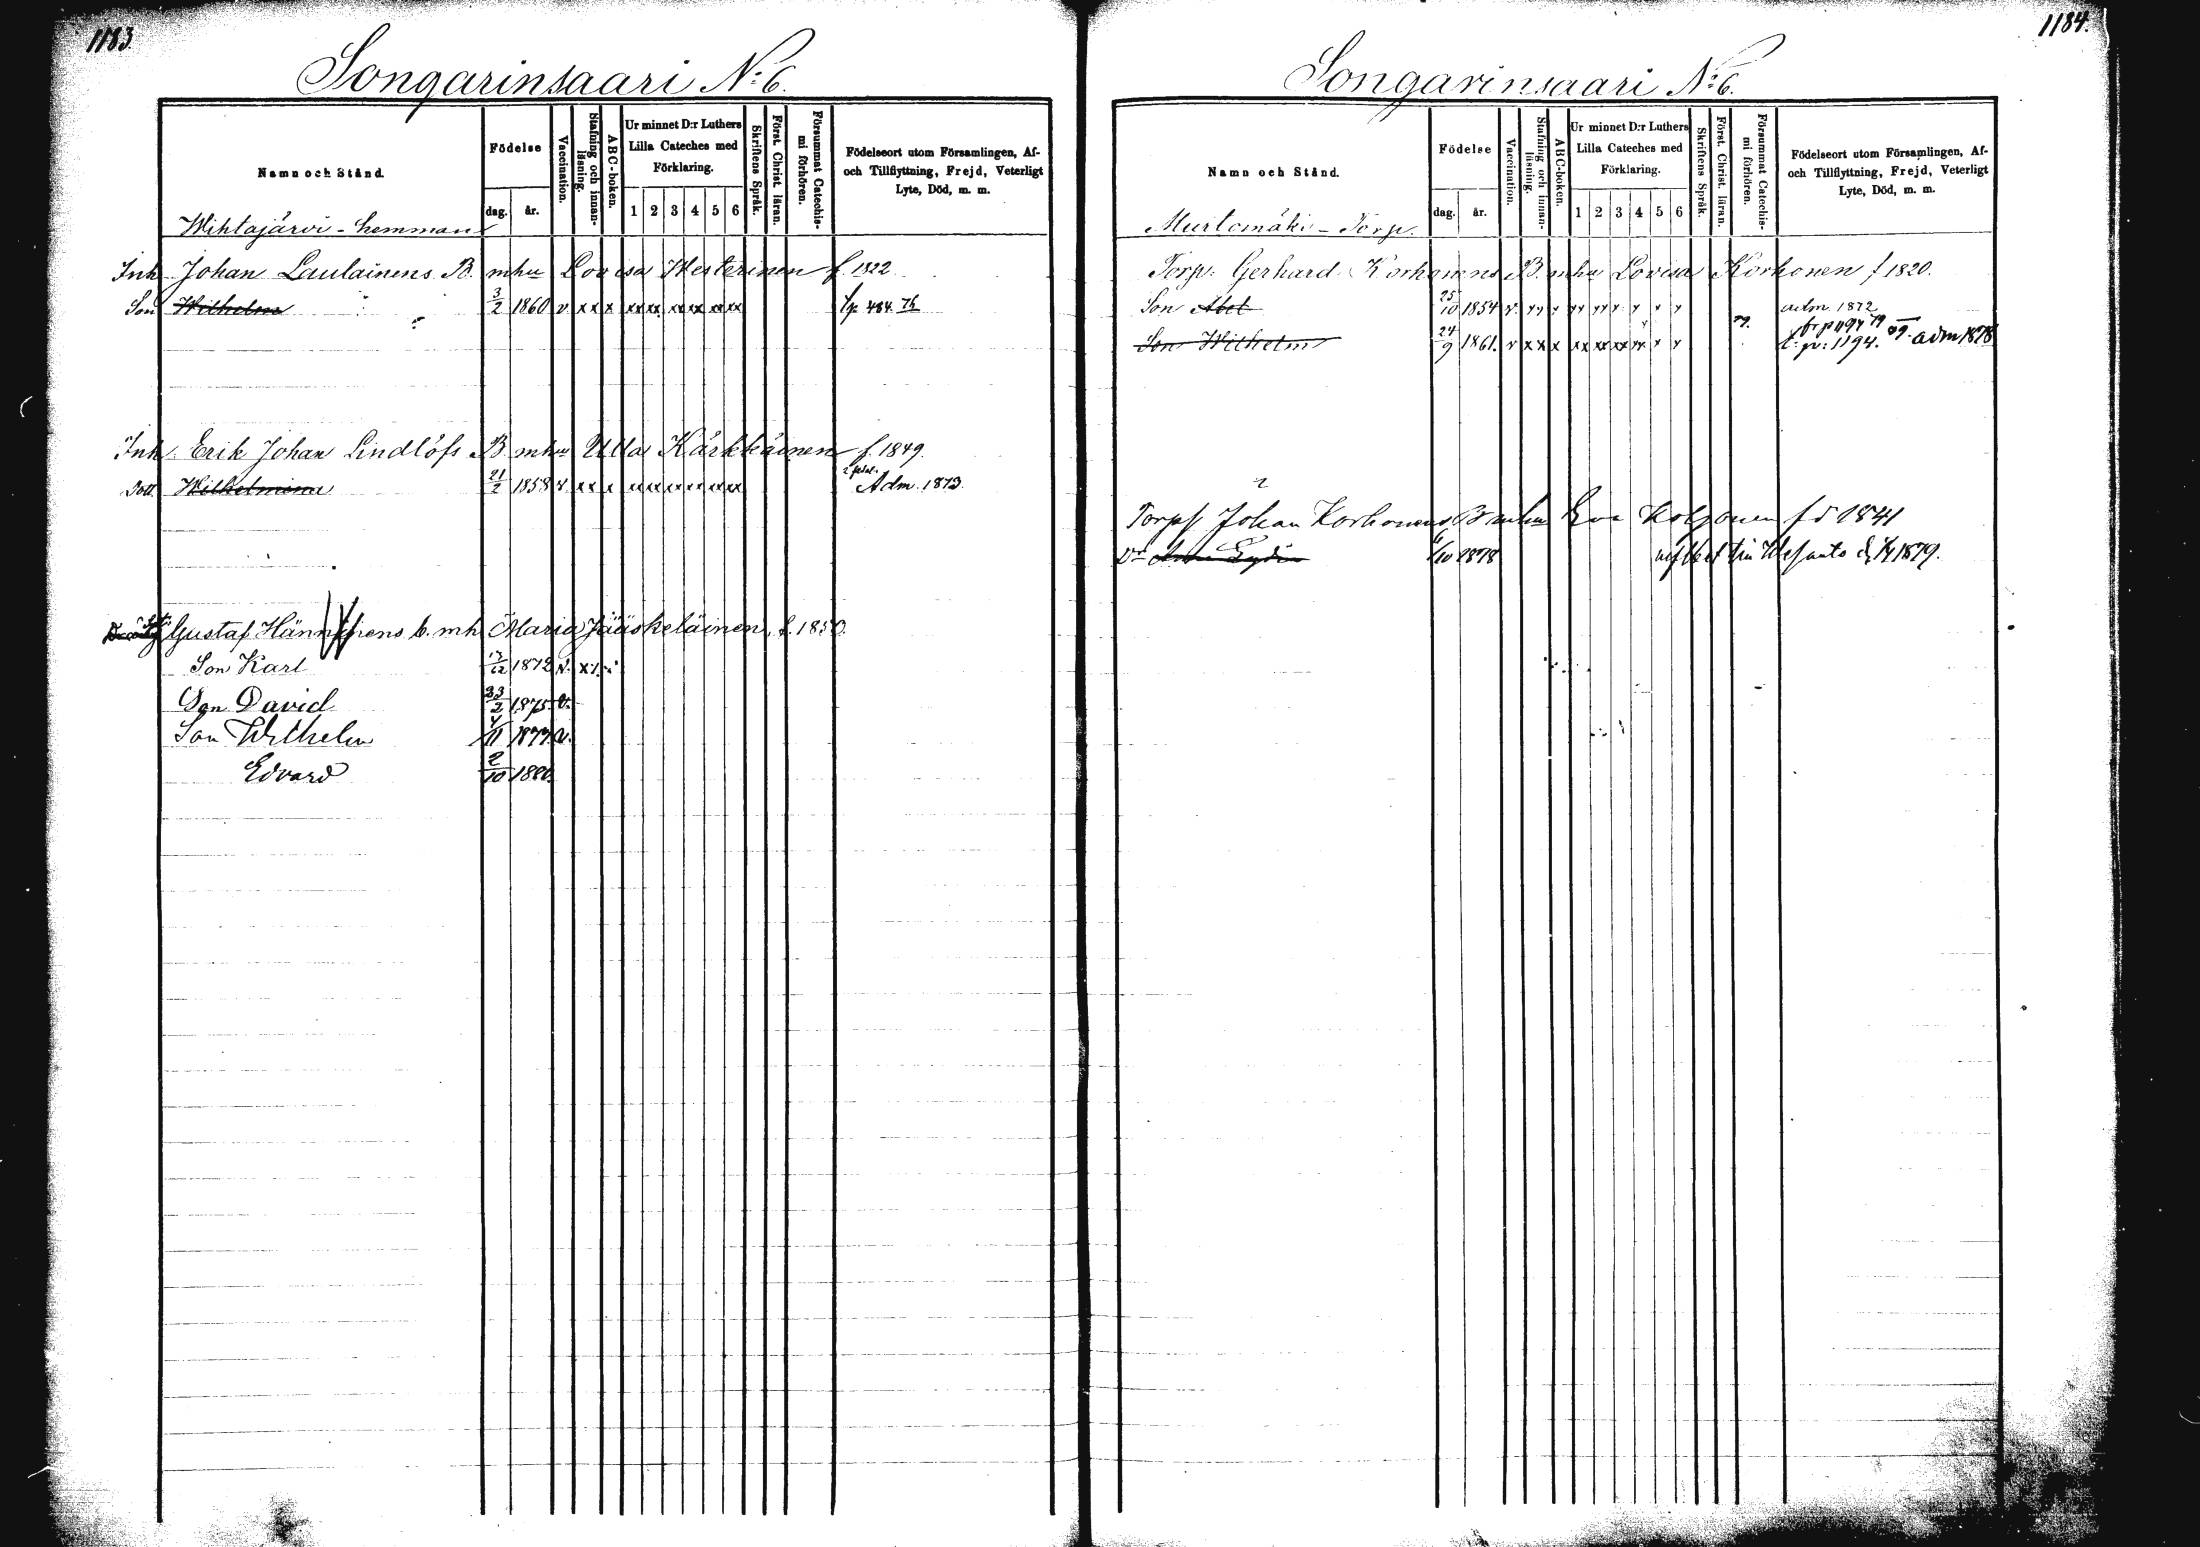 1183.
Songarinsaari N:6.
Namn och Stånd.
Födelse
dag.
år.
Vaccination.
Stafning och innan-läsning.
ABC-boken.
Ur minnet D:r Luthers
Lilla Cateches med
Förklaring.
1 2 3 4 5 6
Skriftens Språk.
Först. Christ. läran.
Försummat Catechis-mi förhören.
Födelseort utom Församlingen, Af-
och Tillflyttning, Frejd, Veterligt
Lyte, Död, m. m.
Wihtajärvi - hemman
Inh Johan Laulainens B. mhu Lovisa Westerinen f. 1822
Son Wilhelm 3/2 1860 v xx x xx xx xx xx xx xx
Inh. Erik Johan Lindlöfs B mhu Ulla Kärkkäinen f. 1849.
Dott. Wilhelmina 21/2 1858 v xx x xx xx xx xx xx xx Adm. 1873.
Gustaf Hänninens b. mh Maria Jääskeläinen, f. 1850.
Son Karl 1872 v.
Son David 23/2 1875 v.
Son Wilhelm 4/11 1877 v.
Edvard 2/10 1880.
1184.
Songarinsaari N:6.
Namn och Stånd.
Födelse
dag.
år.
Vaccination.
Stafning och innan-läsning.
ABC-boken.
Ur minnet D:r Luthers
Lilla Cateches med
Förklaring.
1 2 3 4 5 6
Skriftens Språk.
Först. Christ. läran.
Försummat Catechis-mi förhören.
Födelseort utom Församlingen, Af-
och Tillflyttning, Frejd, Veterligt
Lyte, Död, m. m.
Murtomäki - Torp.
Torp: Gerhard Korhonens B mhu Lovisa Korhonen f 1820.
Son Abel 25/10 1854 v. adm 1872
fr p 1194 79
Son Wilhelm 24/9 1861. v xx x xx xx xx xx x x t. p: 1194. adm 1878
Torp Johan Korhonens B mhu Eva Holsonen f d 1841
Lydia 10 1878 1879.